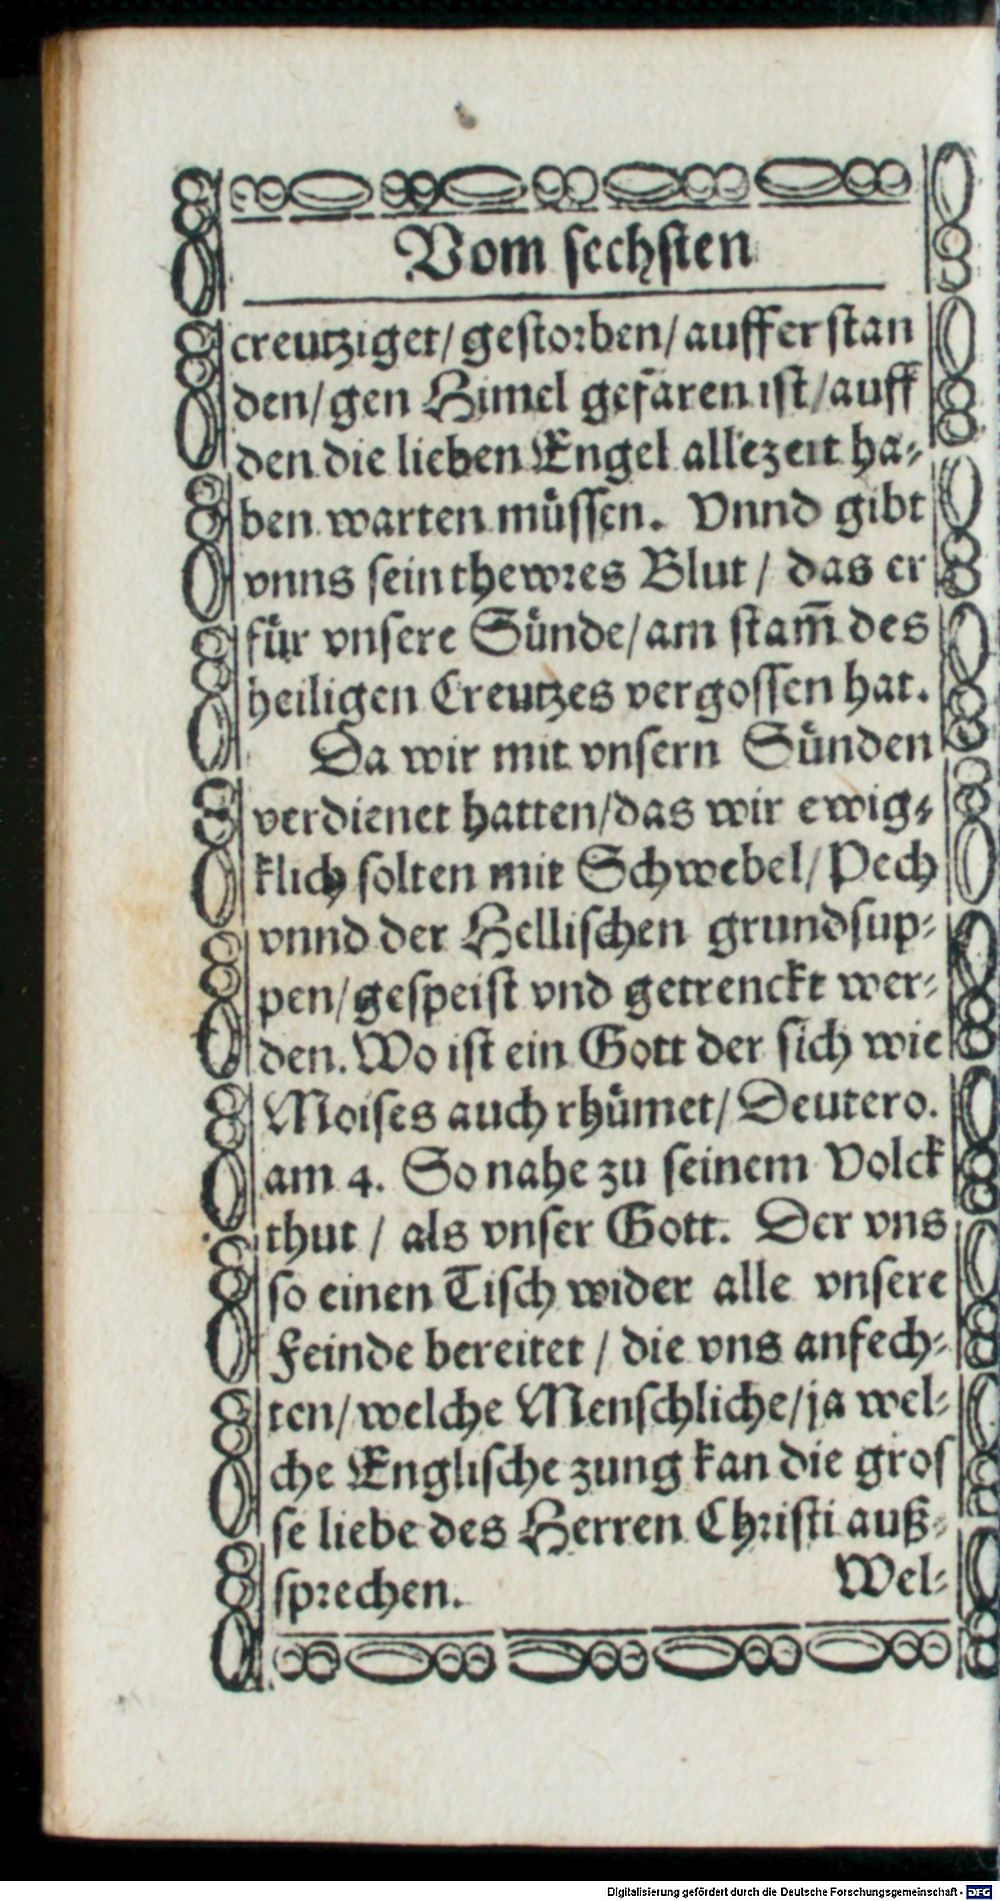 Vom sechsten
creutziget/ gestorben/ aufferstan
den/ gen Himel gefaren ist/ auff
den die lieben Engel allezeit ha⸗
ben warten müssen. Vnnd gibt
vnns sein thewres Blut / das er
für vnsere Sünde/ am stam̃ des
heiligen Creutzes vergossen hat.
Da wir mit vnsern Sünden
verdienet hatten/ das wir ewig⸗
klich solten mit Schwebel/ Pech
vnnd der Hellischen grundsup⸗
pen/ gespeist vnd getrenckt wer⸗
den. Wo ist ein Gott der sich wie
Moises auch rhümet/ Deutero.
am 4. So nahe zu seinem Volck
thut / als vnser Gott. Der vns
so einen Tisch wider alle vnsere
Feinde bereitet / die vns anfech⸗
ten/ welche Menschliche/ ja wel⸗
che Englische zung kan die gros
se liebe des Herren Christi auß⸗
sprechen. Wel⸗
Digitalisierung gefördert durch die Deutsche Forschungsgemeinschaft - DFG